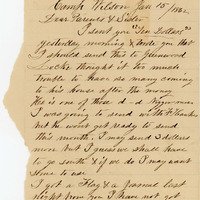 Camp Nelson Jan 15th/1862.
Dear Parents & Sister
I sent you "Ten Dollars"
yesterday morning & wrote you that
I should send this to Greenwood
Locke thought it too much
trouble to have so many coming
to his house after the money
He is one of those d—d
I was going to send with Frank
but he won't get ready to send
this month. I may send 5 dollars
more but I guess we shall have
to go south & if we do I may want
some to use
I got a Flag & a Journal last
night from Geo I have not got